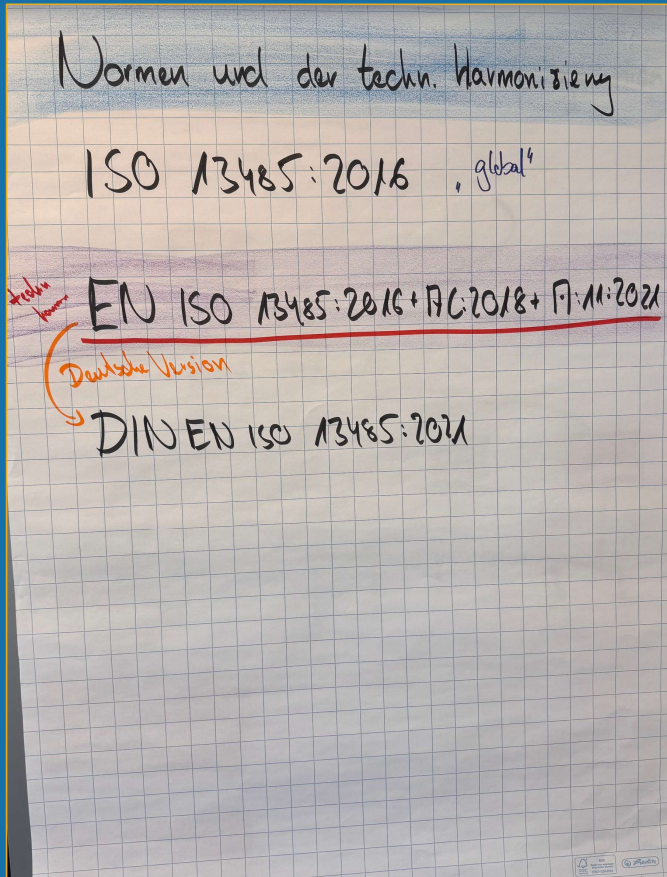 Normen und der techn. Harmonisierung
ISO 13485:2016 „global“
techn.
EN ISO 13485:2016+AC:2018+A:11:2021
Deutsche Version
DIN EN ISO 13485:2021